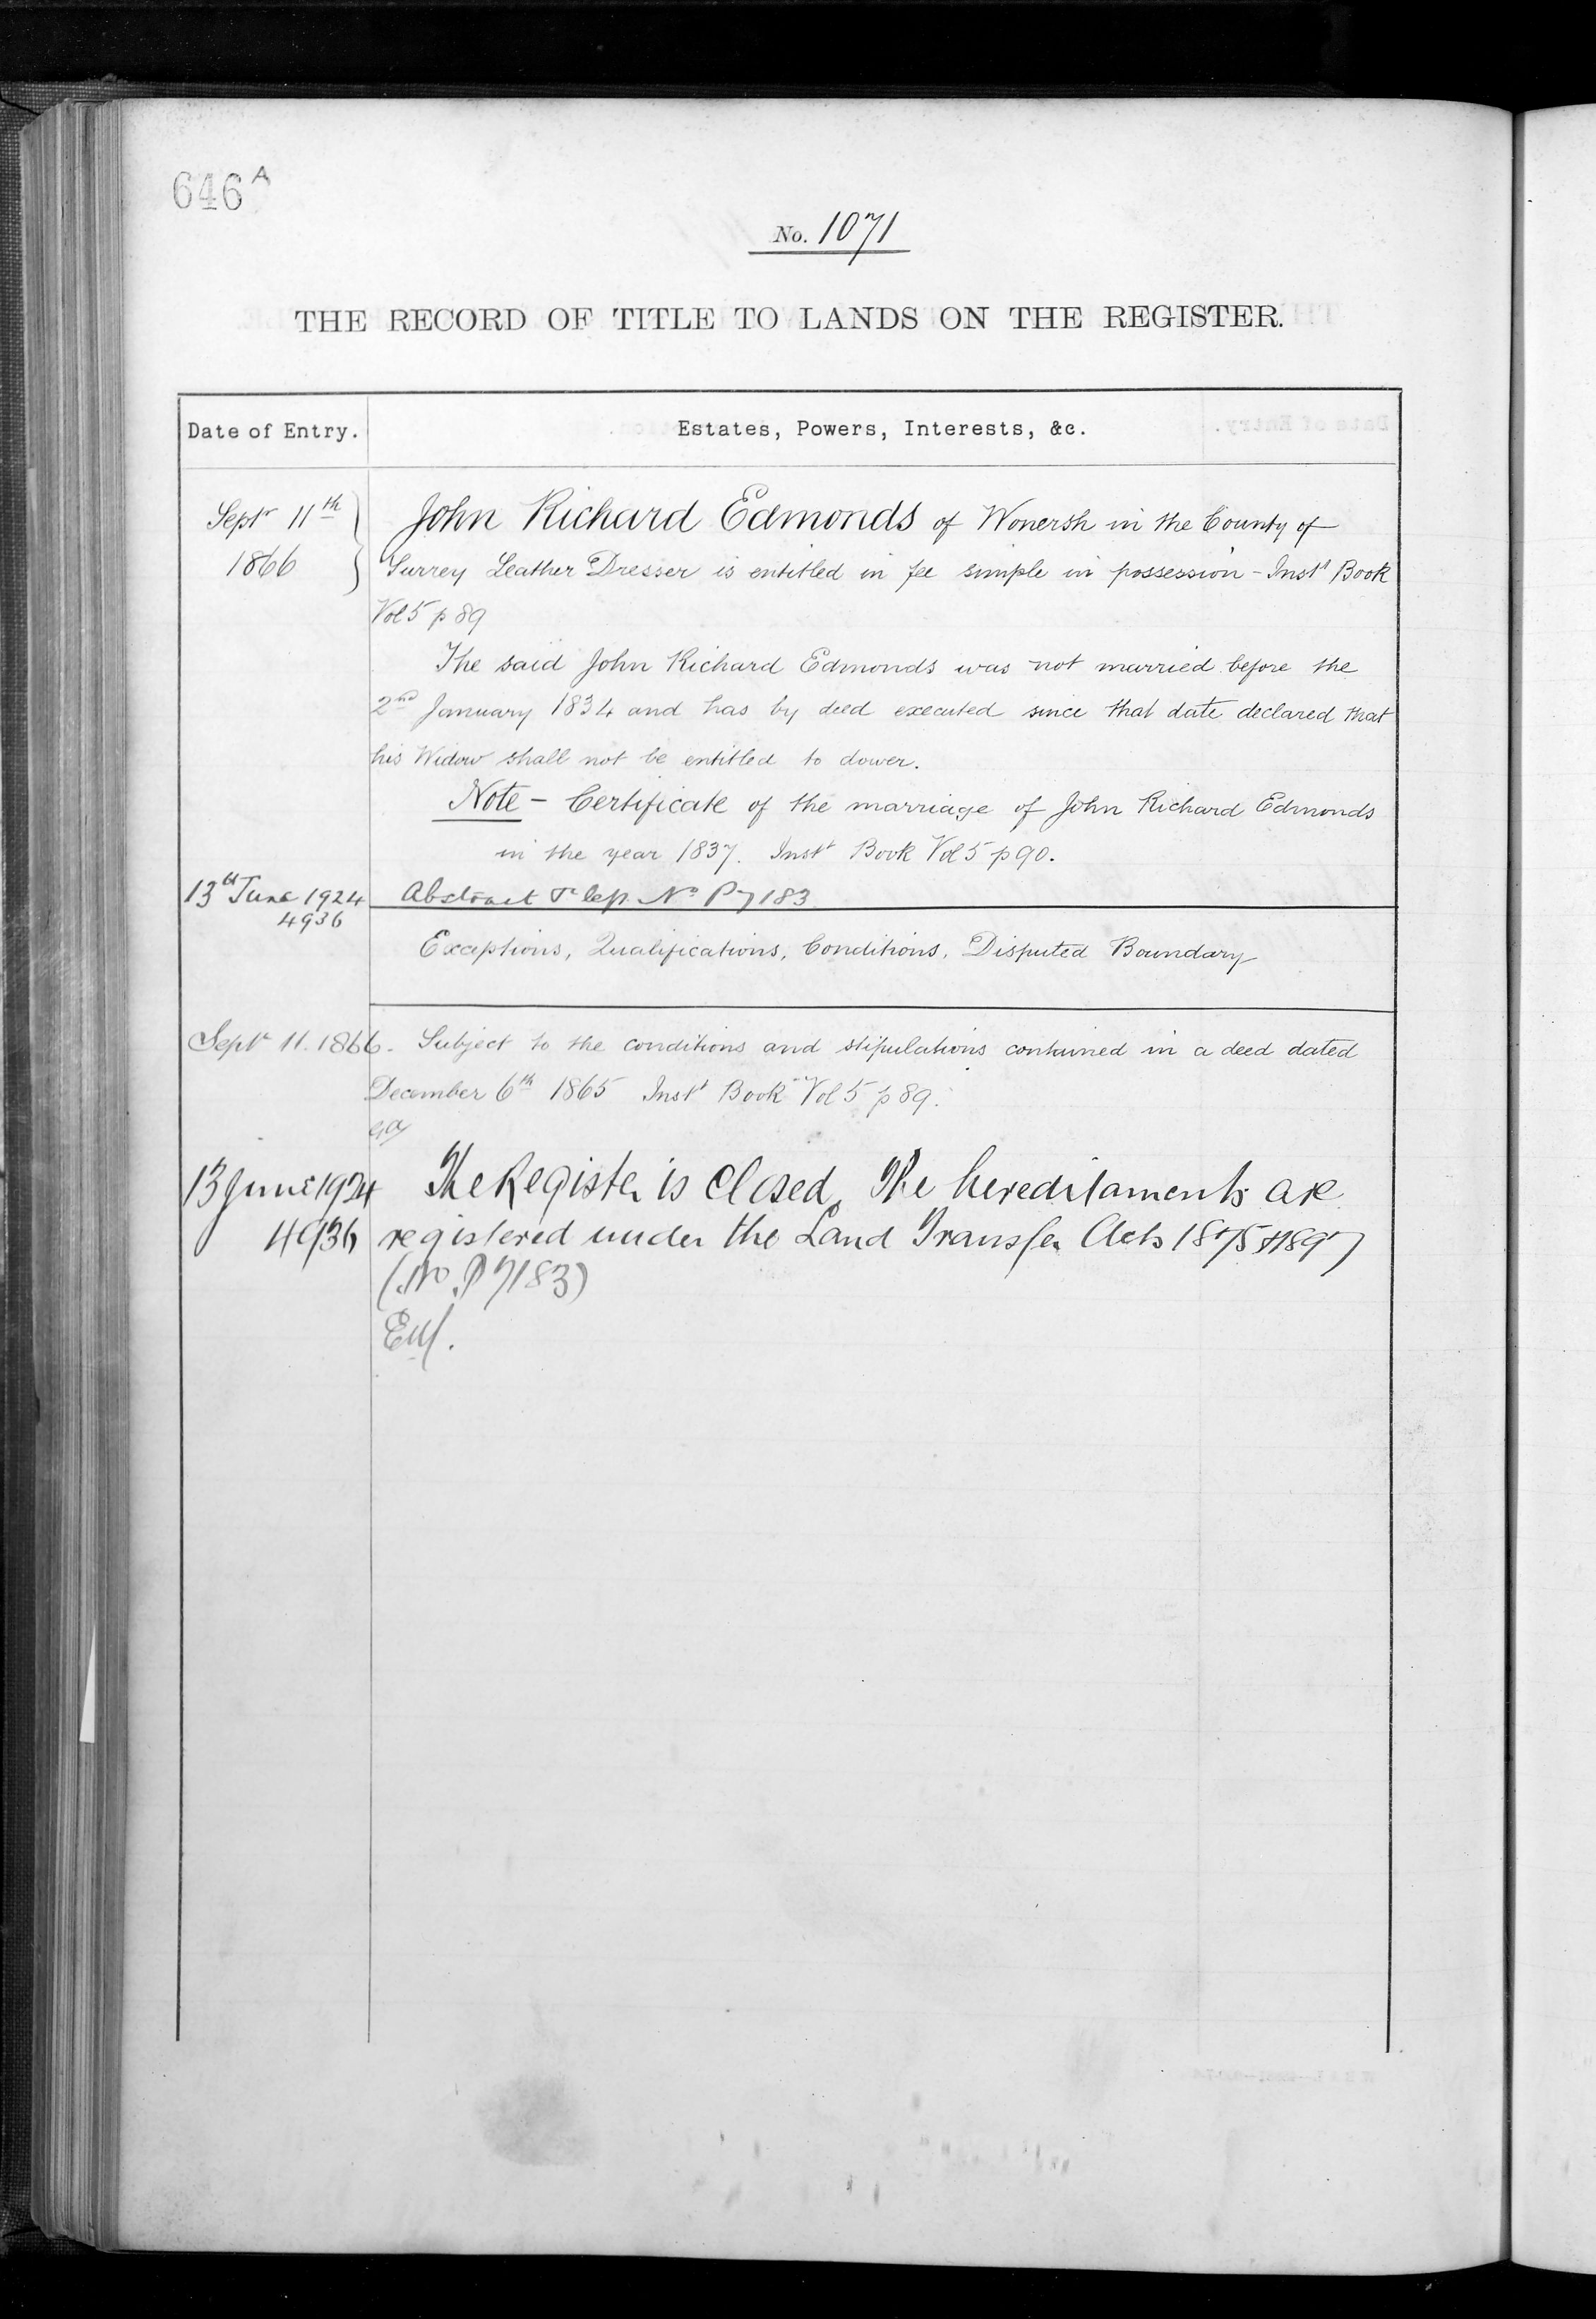 646 A
No. 1071
THE RECORD OF TITLE TO LANDS ON THE REGISTER.
Date of Entry. Estates, Powers, Interests, &c.
Septr 11th John Richard Edmonds of Wonersh in the County of
1866 Surrey Leather Dresser is entitled in fee simple in possession - Inst Book
Vol 5 p 89
The said John Richard Edmonds was not married before the
2nd January 1834 and has by deed executed since that date declared that
his Widow shall not be entitled to dower.
Note - Certificate of the marriage of John Richard Edmonds
in the year 1837. Inst Book Vol 5 p 90.
13th June 1924 Abstract No P7183
4936
Exceptions, Qualifications, Conditions, Disputed Boundary
Septr 11. 1866. Subject to the conditions and stipulations contained in a deed dated
December 6th 1865 Inst Book Vol 5 p 89.
13 June 1924 The Register is closed. The hereditaments are
4936 registered under the Land Transfer Acts 1875 & 1897
(No. P7183)